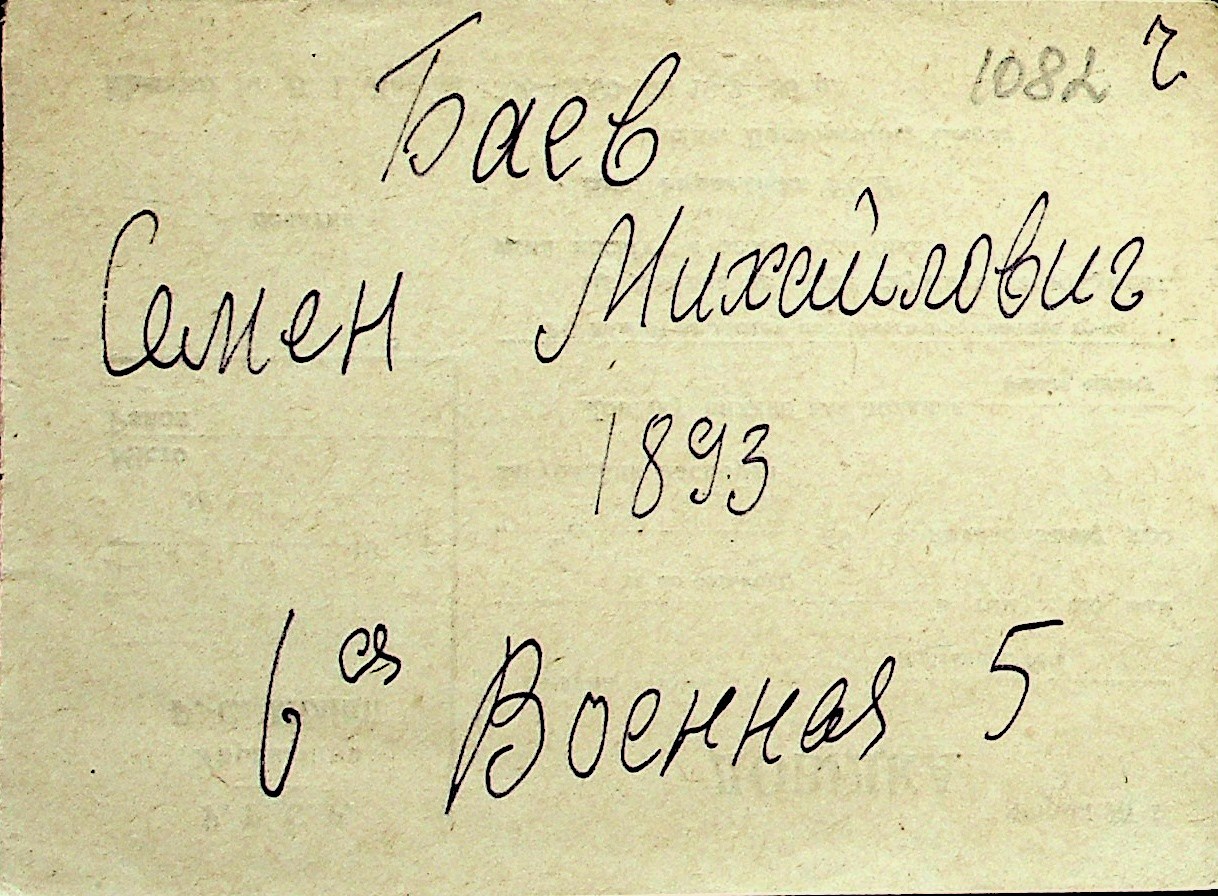 1082 ч
Баев
Семен Михайлович
1893
6ая Военная 5